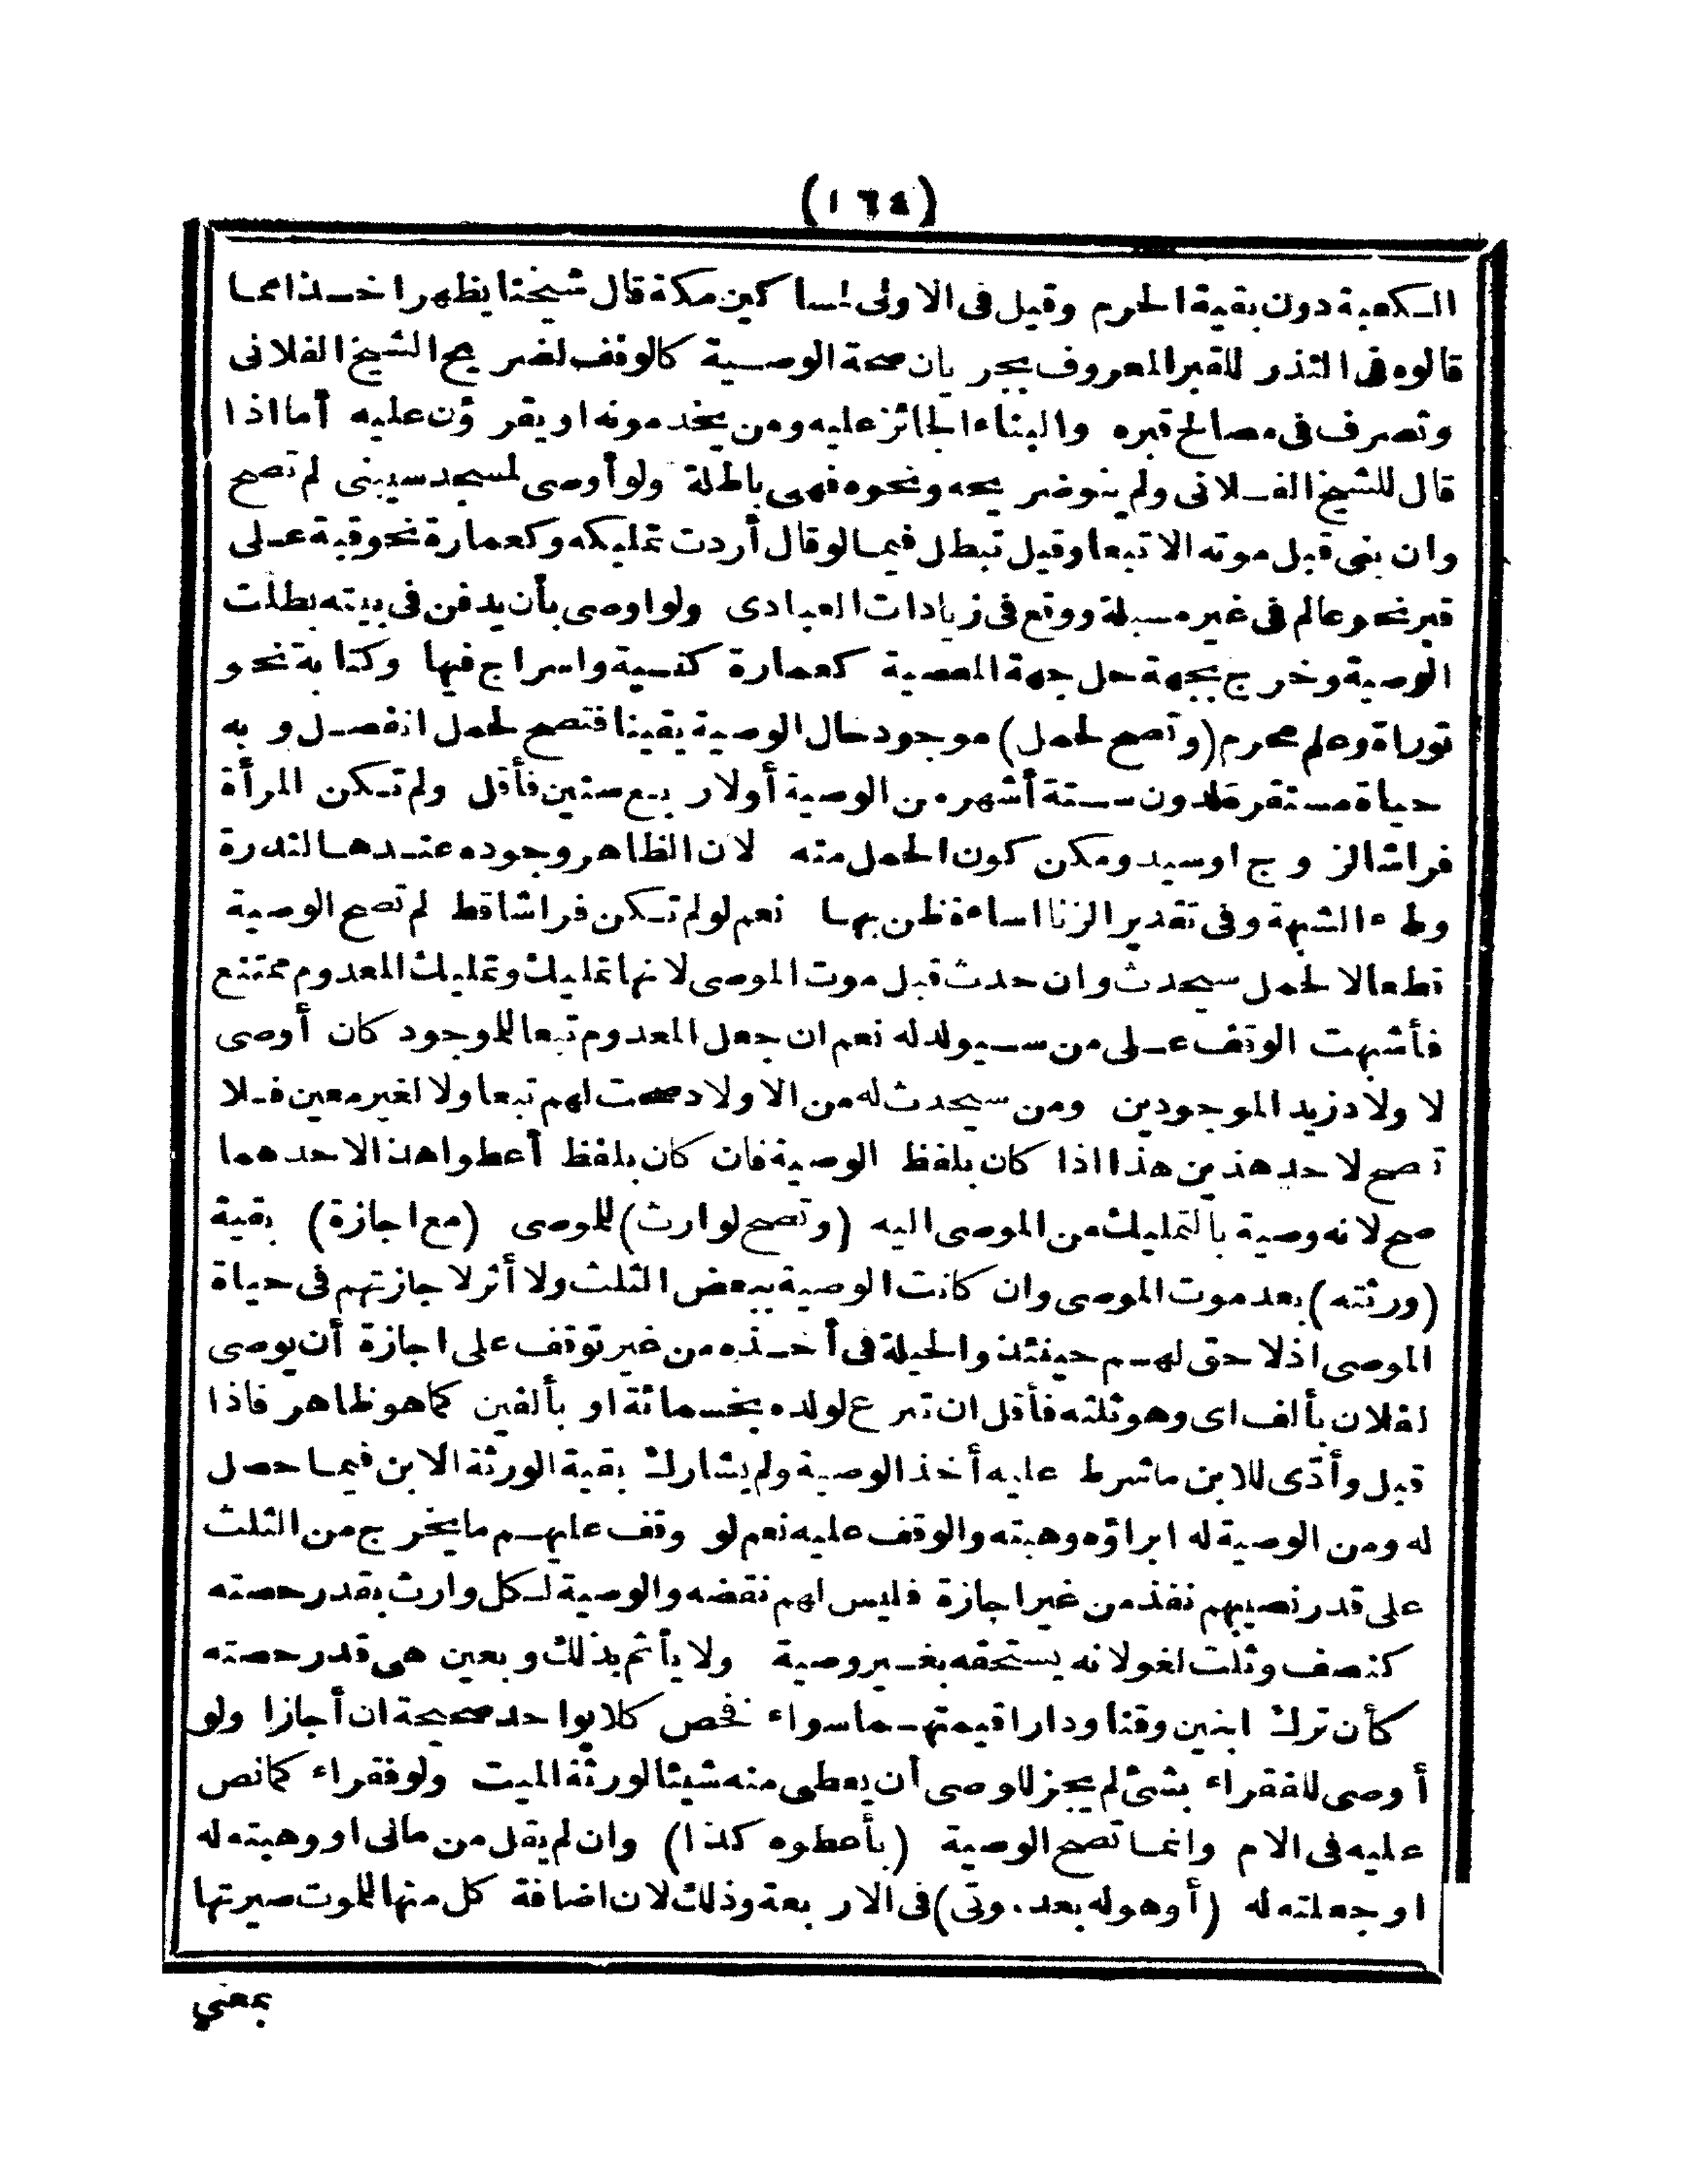 (١٦٤)
الكعبة دون بقية الحرم وقيل فى الاولى لمساكين مكة قال شيخنا يظهر اخذا مما
قالوه فى النذر للقبر المعروف بجرجان صحة الوصية كالوقف لضريح الشيخ الفلانى
وتصرف فى مصالح قبره والبناء الجائز عليه ومن يخدمونه او يقرؤن عليه أما اذا
قال للشيخ الفلانى ولم ينو ضريحه ونحوه فهى باطلة ولو أوصى لمسجد سيبنى لم تصح
وان بنى قبل موته الا تبعا وقيل تبطل فيما لو قال أردت تمليكه وكعمارة نحو قبة على
قبر نحو عالم فى غير مسبلة ووقع فى زيادات العبادى ولو اوصى بأن يدفن فى بيته بطلت
الوصية وخرج بجهة حل جهة المعصية كعمارة كنيسة واسراج فيها وكتابة نحو
توراة وعلم محرم (وتصح لحمل) موجود حال الوصية يقينا فتصح لحمل انفصل وبه
حياة مستقرة لدون ستة أشهر من الوصية أو لاربع سنين فأقل ولم تكن المرأة
فراشا لزوج او سيد ومكن كون الحمل منه لان الظاهر وجوده عندها لندرة
وطء الشبهة وفى تقدير الزنا اساءة ظن بها نعم لو لم تكن فراشا قط لم تصح الوصية
قطعا لا لحمل سيحدث وان حدث قبل موت الموصى لانها تمليك وتمليك المعدوم ممتنع
فأشبهت الوقف على من سيولد له نعم ان جعل المعدوم تبعا للموجود كان أوصى
لاولاد زيد الموجودين ومن سيحدث له من الاولاد صحت لهم تبعا ولا لغير معين فلا
تصح لاحد هذين هذا اذا كان بلفظ الوصية فان كان بلفظ أعطوا هذا لاحدهما
صح لانه وصية بالتمليك من الموصى اليه (وتصح لوارث) للموصى (مع اجازة) بقية
(ورثته) بعد موت الموصى وان كانت الوصية ببعض الثلث ولا أثر لاجازتهم فى حياة
الموصى اذ لا حق لهم حينئذ والحيلة فى أخذه من غير توقف على اجازة أن يوصى
لفلان بألف اى وهو ثلثه فأقل ان تبرع لولده بخمسمائة او بألفين كما هو ظاهر فاذا
قبل وأدّى للابن ما شرط عليه أخذ الوصية ولم يشارك بقية الورثة الابن فيما حصل
له ومن الوصية له ابراؤه وهبته والوقف عليه نعم لو وقف عليهم ما يخرج من الثلث
على قدر نصيبهم نفذ من غير اجازة فليس لهم نقضه والوصية لكل وارث بقدر حصته
كنصف وثلث لغو لانه يستحقه بغير وصية ولا يأثم بذلك وبعين هى قدر حصته
كأن ترك ابنين وقنا ودارا قيمتهما سواء فخص كلا بواحد صحيحة ان أجازا ولو
أوصى للفقراء بشئ لم يجز للوصى أن يعطى منه شيئا لورثة الميت ولو فقراء كما نص
عليه فى الام وانما تصح الوصية (بأعطوه كذا) وان لم يقل من مالى او وهبته له
او جعلته له (أو هو له بعد موتى) فى الاربعة وذلك لان اضافة كل منها للموت صيرتها
بمعني